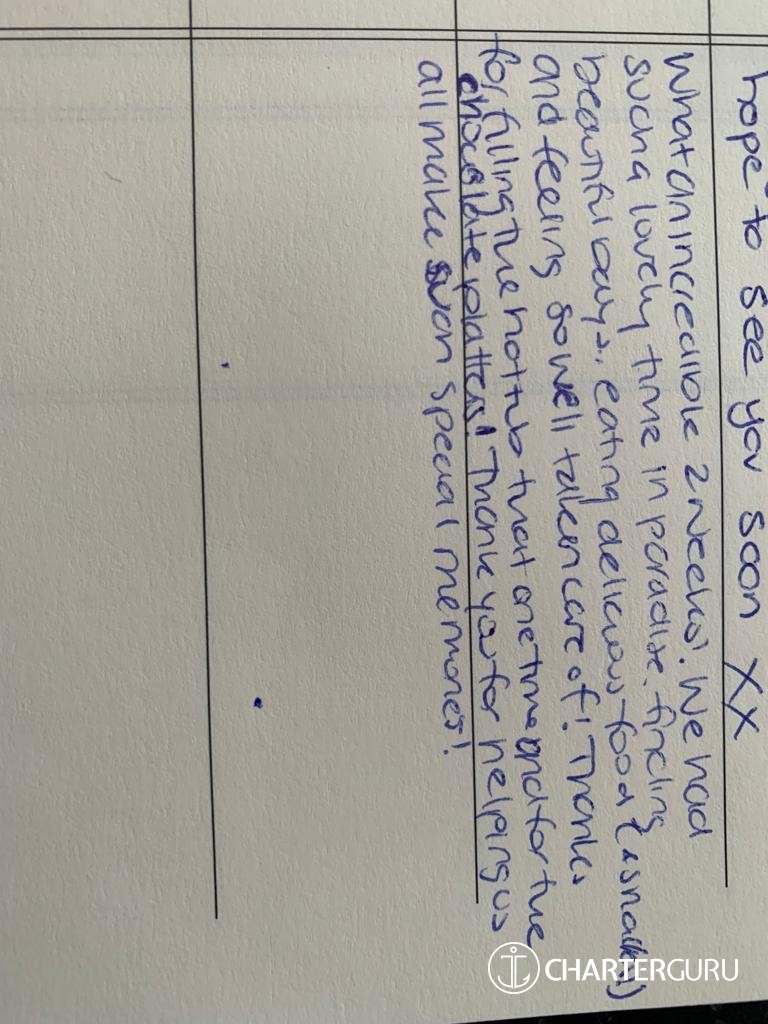 hope to see you soon XX
What an incredible 2 weeks! We had
such a lovely time in paradise. finding
beautiful bays, eating delicious food (& snacks!)
and feeling so well taken care of! Thanks
for filling the hot tub that one time and for the
chocolate platters! Thank you for helping us
all make such special memories!
CHARTERGURU